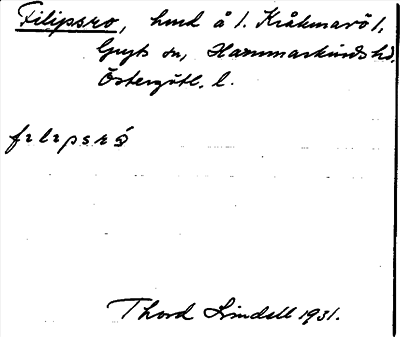 Filipsro, hmd å 1. Kråkmarö 1,
Gryts sn, Hammarkinds hd,
Östergötl. l.
fɪlɪpsrṓ
Thord Lindell 1931.